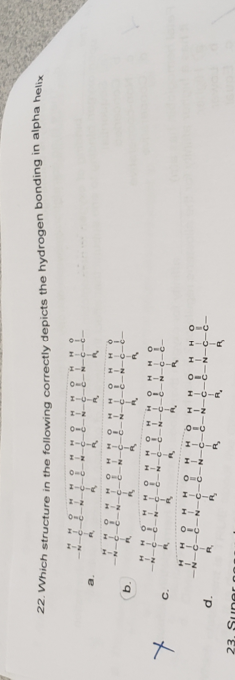 22. Which structure in the following correctly depicts the hydrogen bonding in alpha helix
H H O H H O H H O H H O H H O
—N—C—C—N—C—C—N—C—C—N—C—C—N—C—C—
a.
H H O H H O H H O H H O H H O
—N—C—C—N—C—C—N—C—C—N—C—C—N—C—C—
b.
H H O H H O H H O H H O H H O
—N—C—C—N—C—C—N—C—C—N—C—C—N—C—C—
c.
H H O H H O H H O H H O H H O
—N—C—C—N—C—C—N—C—C—N—C—C—N—C—C—
d.
23.